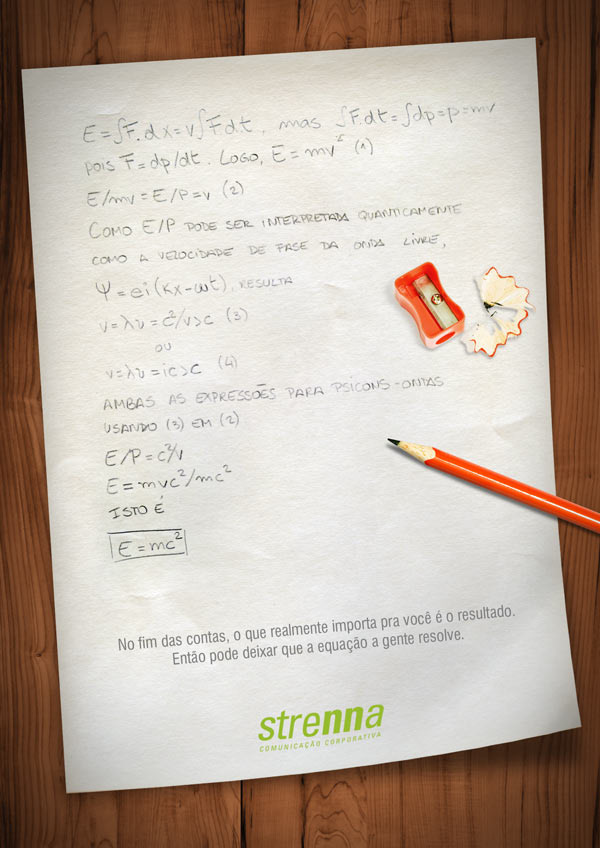 E = ∫F.dx = v∫F.dt, mas ∫F.dt = ∫dp = p = mv
pois F = dp/dt. LOGO, E = mv² (1)
E/mv = E/P = v (2)
COMO E/P PODE SER INTERPRETADA QUANTICAMENTE
COMO A VELOCIDADE DE FASE DA ONDA LIVRE,
Ψ = ei(Kx-ωt), RESULTA
v = λν = c²/v>c (3)
OU
v = λν = ic>c (4)
AMBAS AS EXPRESSÕES PARA PSÍCONS-ONTAS
USANDO (3) EM (2)
E/P = c²/v
E = mvc²/mc²
ISTO É
E = mc²
No fim das contas, o que realmente importa pra você é o resultado.
Então pode deixar que a equação a gente resolve.
strenna
COMUNICAÇÃO CORPORATIVA